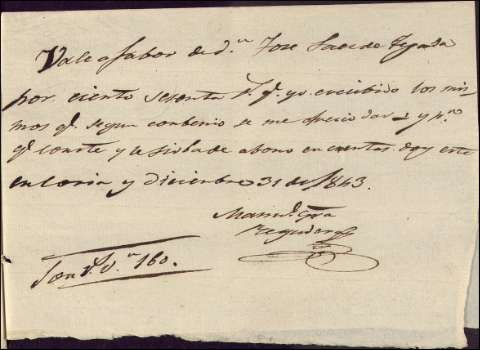 Vale a fabor de d.n Jose Saez de Tejada
por ciento sesenta r.s q.e yo e recibido los mis-
mos q.e segun combenio se me ofrecio dar y p.a
q.e conste y le sirba de abono en cuentas doy este
en Soria y diciembre 31 de 1843.
Man.l Gra
Son r.s v.n 160.